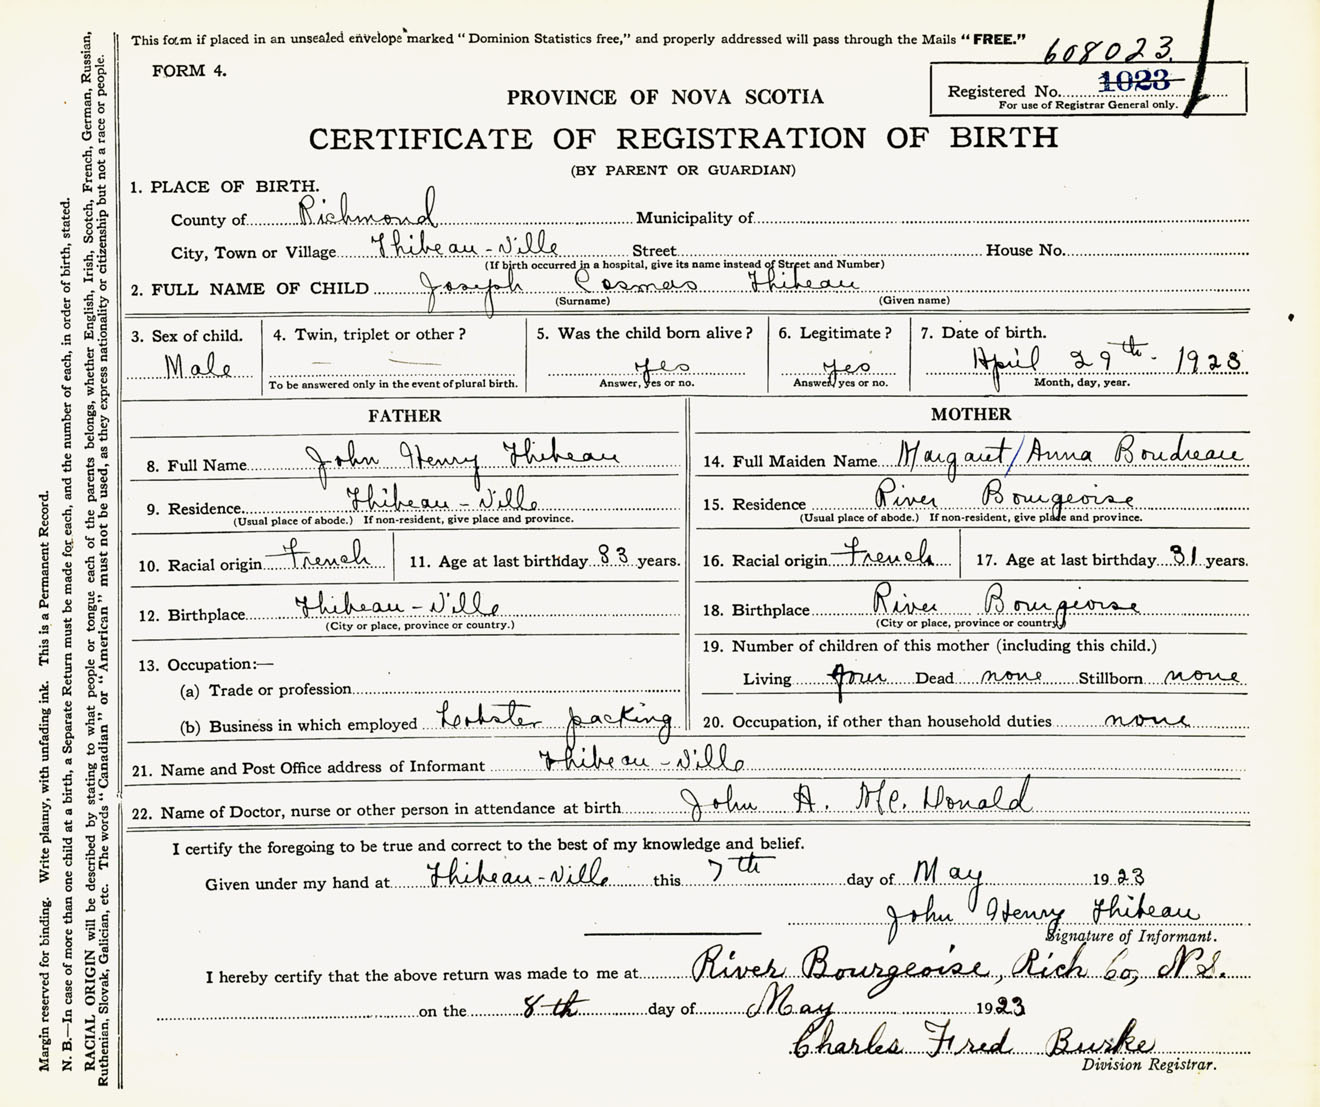 This form if placed in an unsealed envelope marked "Dominion Statistics free," and properly addressed will pass through the Mails "FREE."
608023.
FORM 4.
Registered No. 1023
For use of Registrar General only.
PROVINCE OF NOVA SCOTIA
CERTIFICATE OF REGISTRATION OF BIRTH
(BY PARENT OR GUARDIAN)
1. PLACE OF BIRTH.
County of Richmond Municipality of
City, Town or Village Thibeau-Ville Street House No.
(If birth occurred in a hospital, give its name instead of Street and Number)
2. FULL NAME OF CHILD Joseph Cosmas Thibeau
(Surname) (Given name)
3. Sex of child. 4. Twin, triplet or other? 5. Was the child born alive? 6. Legitimate? 7. Date of birth.
Male — — yes yes April 29th. 1923.
To be answered only in the event of plural birth. Answer, yes or no. Answer, yes or no. Month, day, year.
FATHER
8. Full Name John Henry Thibeau
9. Residence Thibeau-Ville
(Usual place of abode.) If non-resident, give place and province.
10. Racial origin French 11. Age at last birthday 33 years.
12. Birthplace Thibeau-Ville
(City or place, province or country.)
13. Occupation:—
(a) Trade or profession
(b) Business in which employed Lobster packing
MOTHER
14. Full Maiden Name Margaret/Anna Boudreau
15. Residence River Bourgeoise
(Usual place of abode.) If non-resident, give place and province.
16. Racial origin French 17. Age at last birthday 31 years.
18. Birthplace River Bourgeoise
(City or place, province or country)
19. Number of children of this mother (including this child.)
Living four Dead none Stillborn none
20. Occupation, if other than household duties none
21. Name and Post Office address of Informant Thibeau-Ville
22. Name of Doctor, nurse or other person in attendance at birth John A. Mc. Donald
I certify the foregoing to be true and correct to the best of my knowledge and belief.
Given under my hand at Thibeau-Ville this 7th day of May 1923
John Henry Thibeau
Signature of Informant.
I hereby certify that the above return was made to me at River Bourgeoise, Rich Co, N.S.
on the 8th day of May 1923
Charles Fred Burke
Division Registrar.
Margin reserved for binding. Write plainly, with unfading ink. This is a Permanent Record.
N. B.—In case of more than one child at a birth, a Separate Return must be made for each, and the number of each, in order of birth, stated.
RACIAL ORIGIN will be described by stating to what people or tongue each of the parents belongs, whether English, Irish, Scotch, French, German, Russian,
Ruthenian, Slovak, Galician, etc. The words "Canadian" or "American" must not be used, as they express nationality or citizenship but not a race or people.